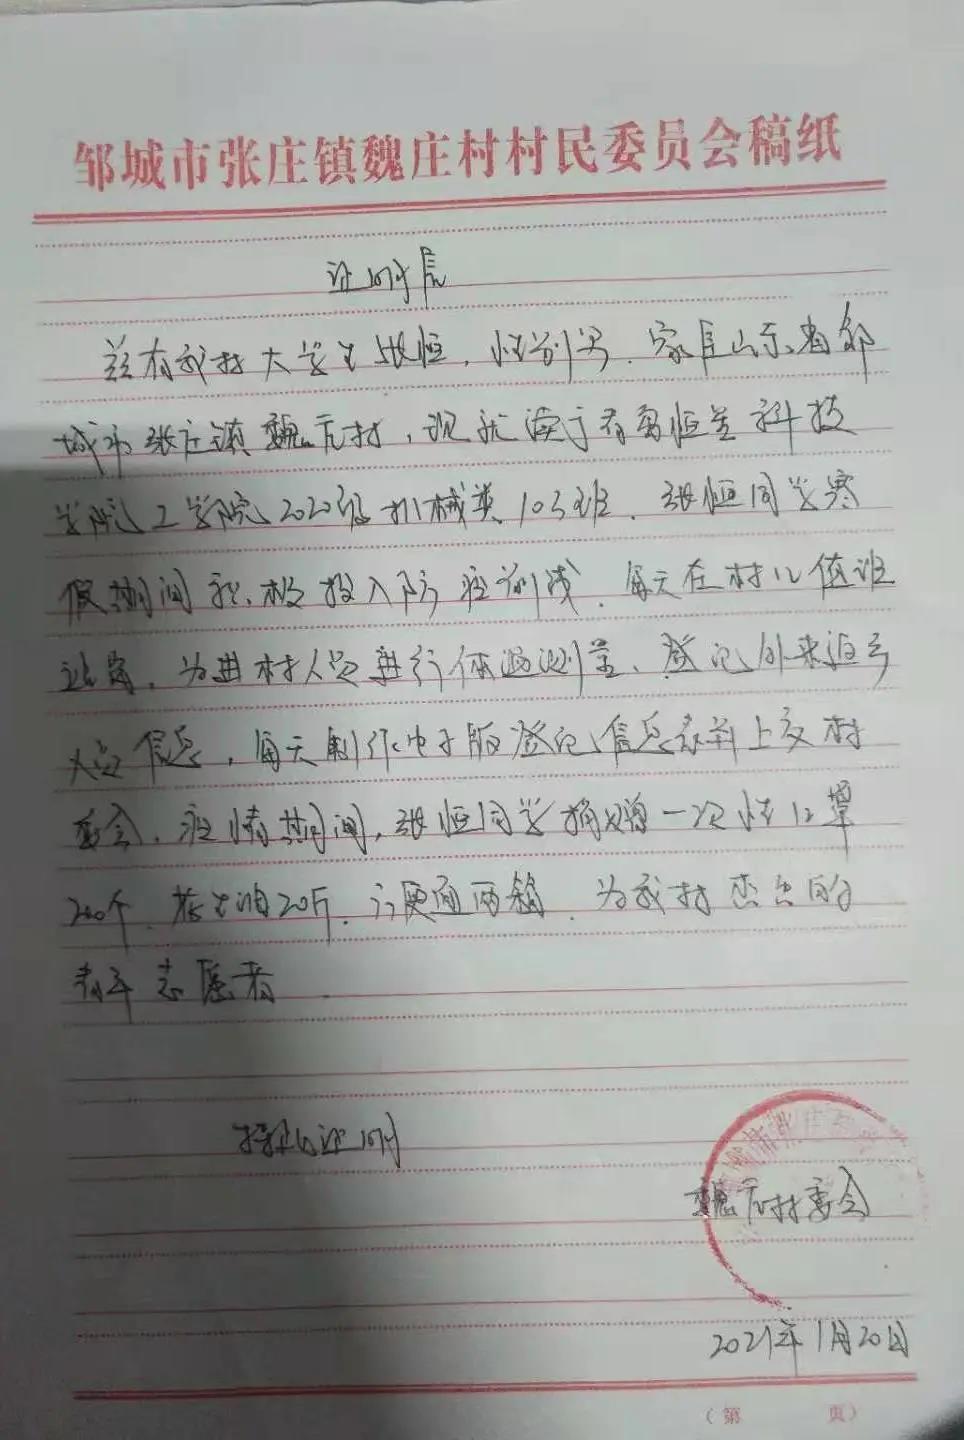 邹城市张庄镇魏庄村村民委员会稿纸
证明信
兹有我村大学生张恒，性别男，家住山东省邹
城市张庄镇魏庄村，现就读于青岛恒星科技
学院工学院2020级机械类103班，张恒同学寒
假期间积极投入防疫前线，每天在村口值班
站岗，为进村人员进行体温测量、登记外来返乡
人员信息，每天制作电子版登记信息表并上交村
委会，疫情期间，张恒同学捐赠一次性口罩
200个，花生油20斤，方便面两箱，为我村杰出的
青年志愿者.
特此证明
魏庄村委会
2021年1月20日
（第 页）